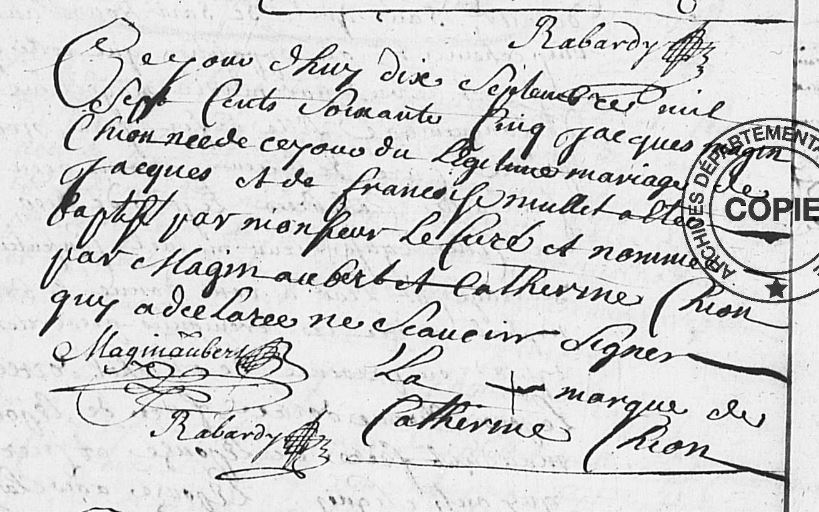 Rabardy
Ce jour d'huy dix Septembre mil
Sept Cents Soixante Cinq Jacques magin
Chion né de ce jour du Légitime mariage de
Jacques et de francoise mullet a été
baptisé par monsieur Le Curé et nommé
par Magin aubert et Catherine Chion
quy a déclarée ne Scavoir Signer
Magin aubert La + marque de
Rabardy Catherine Chion
ARCHIVES DEPARTEMENTA
COPIE